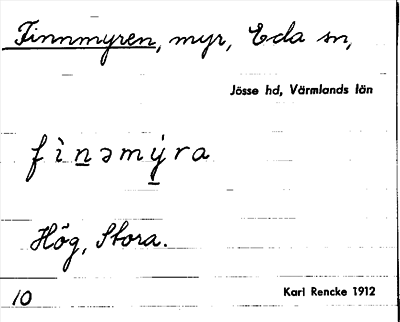 Finnmyren, myr, Eda sn,
Jösse hd, Värmlands län
fìn̲əmý̲ra
Hög, Stora.
10
Karl Rencke 1912